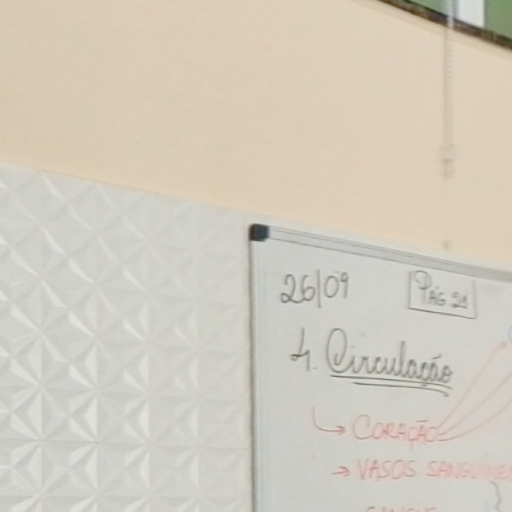 26/09 PÁG 21
4. Circulação
↳ CORAÇÃO
→ VASOS SANGUÍNEO
SANGUE